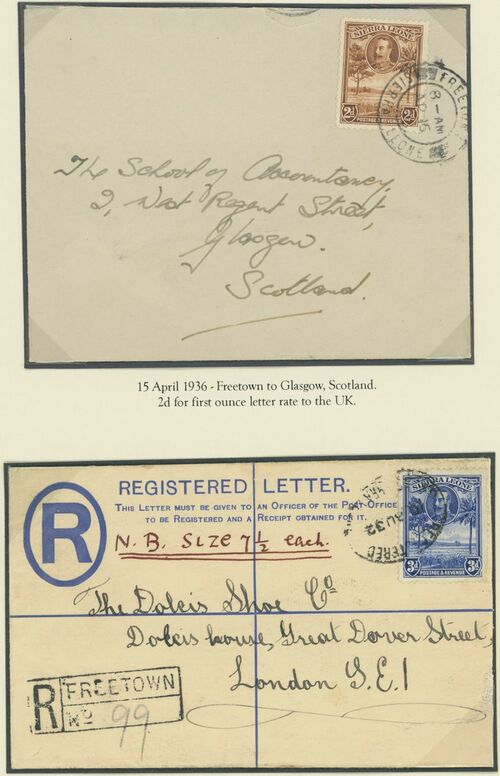 SIERRA LEONE
2d 2d
POSTAGE & REVENUE
FREETOWN
8-AM
AP 15
SIERRA LEONE
The School of Accountancy,
2, West Regent Street,
Glasgow.
Scotland.
15 April 1936 - Freetown to Glasgow, Scotland.
2d for first ounce letter rate to the UK.
R
REGISTERED LETTER.
THIS LETTER MUST BE GIVEN TO AN OFFICER OF THE POST OFFICE
TO BE REGISTERED AND A RECEIPT OBTAINED FOR IT.
N.B. SIZE 7½ each.
SIERRA LEONE
3d 3d
POSTAGE & REVENUE
AU 32
The Dolcis Shoe Co
Dolcis house, Great Dover Street,
London S.E.1
R FREETOWN
No 99